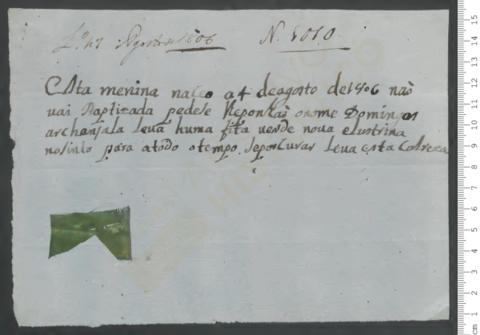 Lº 47 Agosto de 1806 N. 1010
Esta menina naseo a 4 de agosto de 1806 não
vai Baptizada pedese lhe ponhaõ o nome Domingas
archanjala leva huma fita verde nova e lustrina
no sinto para a todo o tempo se porcurar leva esta Contrecena
cm 1 2 3 4 5 6 7 8 9 10 11 12 13 14 15